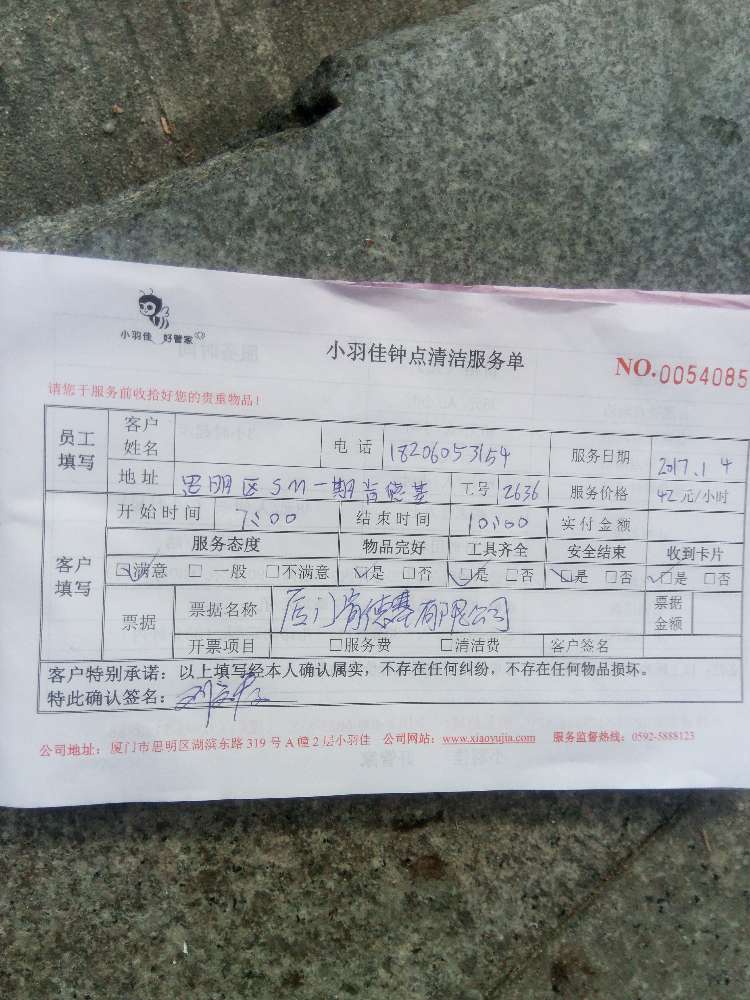 小羽佳 好管家
小羽佳钟点清洁服务单
NO.0054085
请您于服务前收拾好您的贵重物品！
员工填写 客户姓名 电话 18206053154 服务日期 2017.1 4
地址 思明区SM一期肯德基 工号 2636 服务价格 42元/小时
客户填写 开始时间 7:00 结束时间 10:00 实付金额
服务态度 物品完好 工具齐全 安全结束 收到卡片
☑满意 □一般 □不满意 ☑是 □否 ☑是 □否 ☑是 □否 ☑是 □否
票据 票据名称 厦门肯德基有限公司 票据金额
开票项目 □服务费 □清洁费 客户签名
客户特别承诺：以上填写经本人确认属实，不存在任何纠纷，不存在任何物品损坏。
特此确认签名：
公司地址：厦门市思明区湖滨东路319号A幢2层小羽佳 公司网站：www.xiaoyujia.com 服务监督热线：0592-5888123